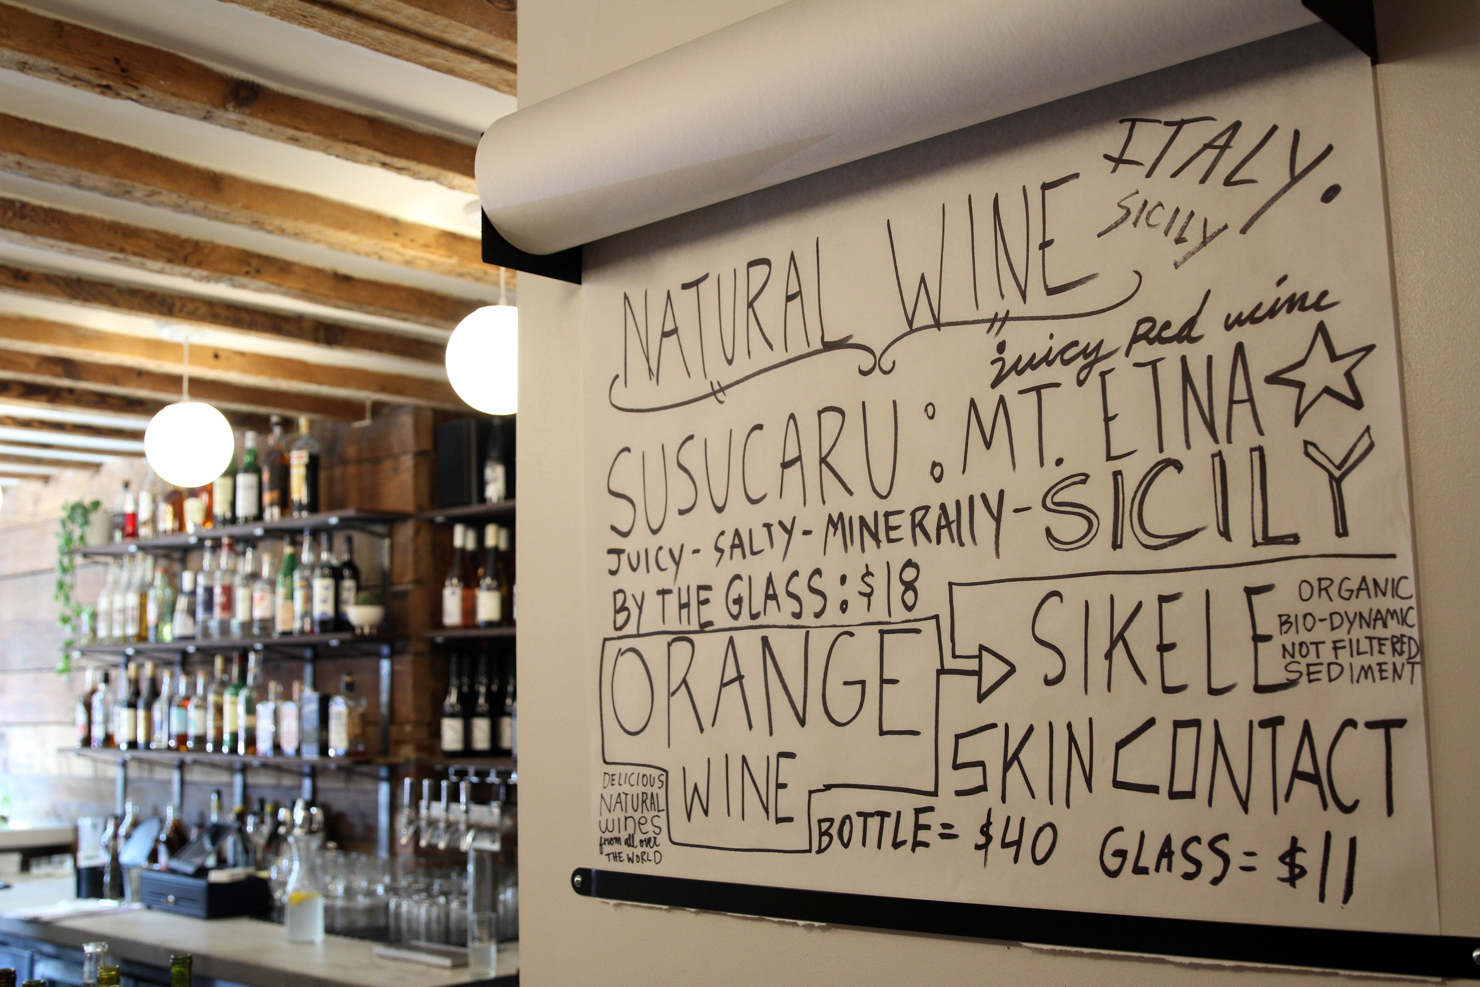 ITALY.
SICILY
NATURAL WINE
juicy Red wine
SUSUCARU : MT. ETNA
JUICY - SALTY - MINERALLY - SICILY
BY THE GLASS : $18
ORANGE
WINE
DELICIOUS
NATURAL
WINES
from all over
THE WORLD
SIKELE
ORGANIC
BIO-DYNAMIC
NOT FILTERED
SEDIMENT
SKIN CONTACT
BOTTLE = $40 GLASS = $11